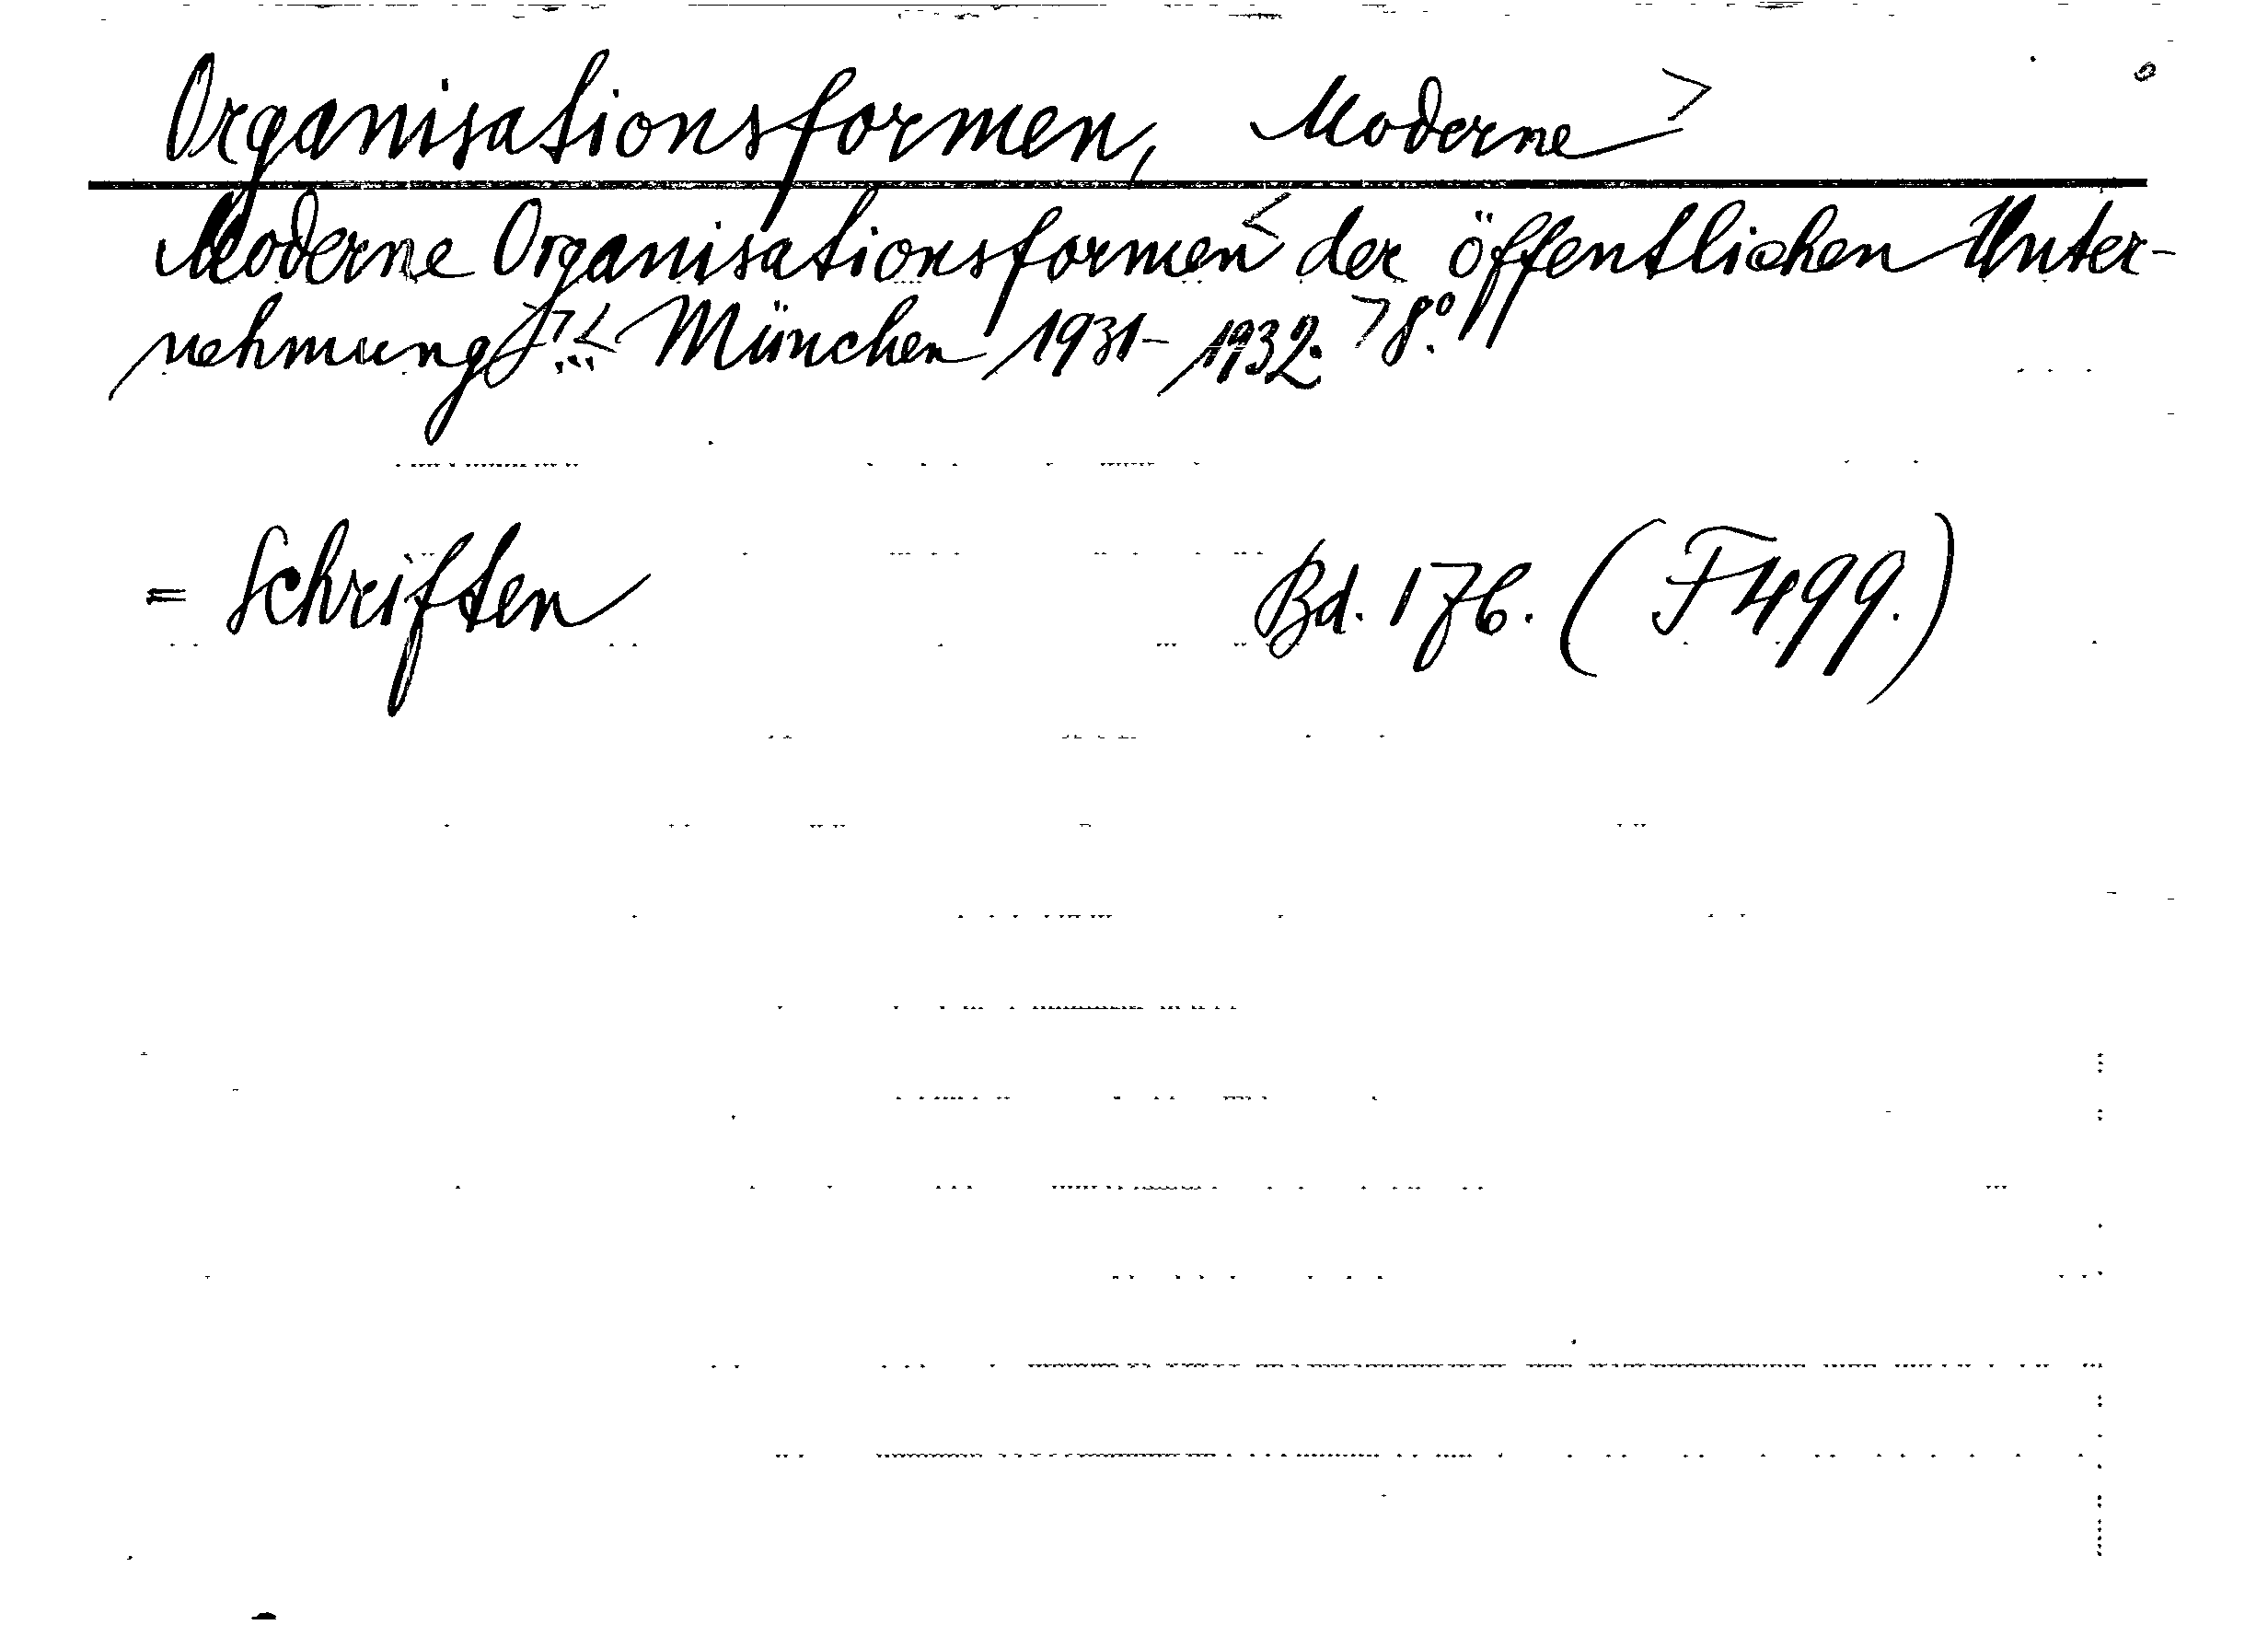 Organisationsformen, Moderne >
Moderne Organisationsformen < der öffentlichen Unter-
nehmung > ... < München 1931-1932. > 8°.
= Schriften Bd. 176. (F499.)